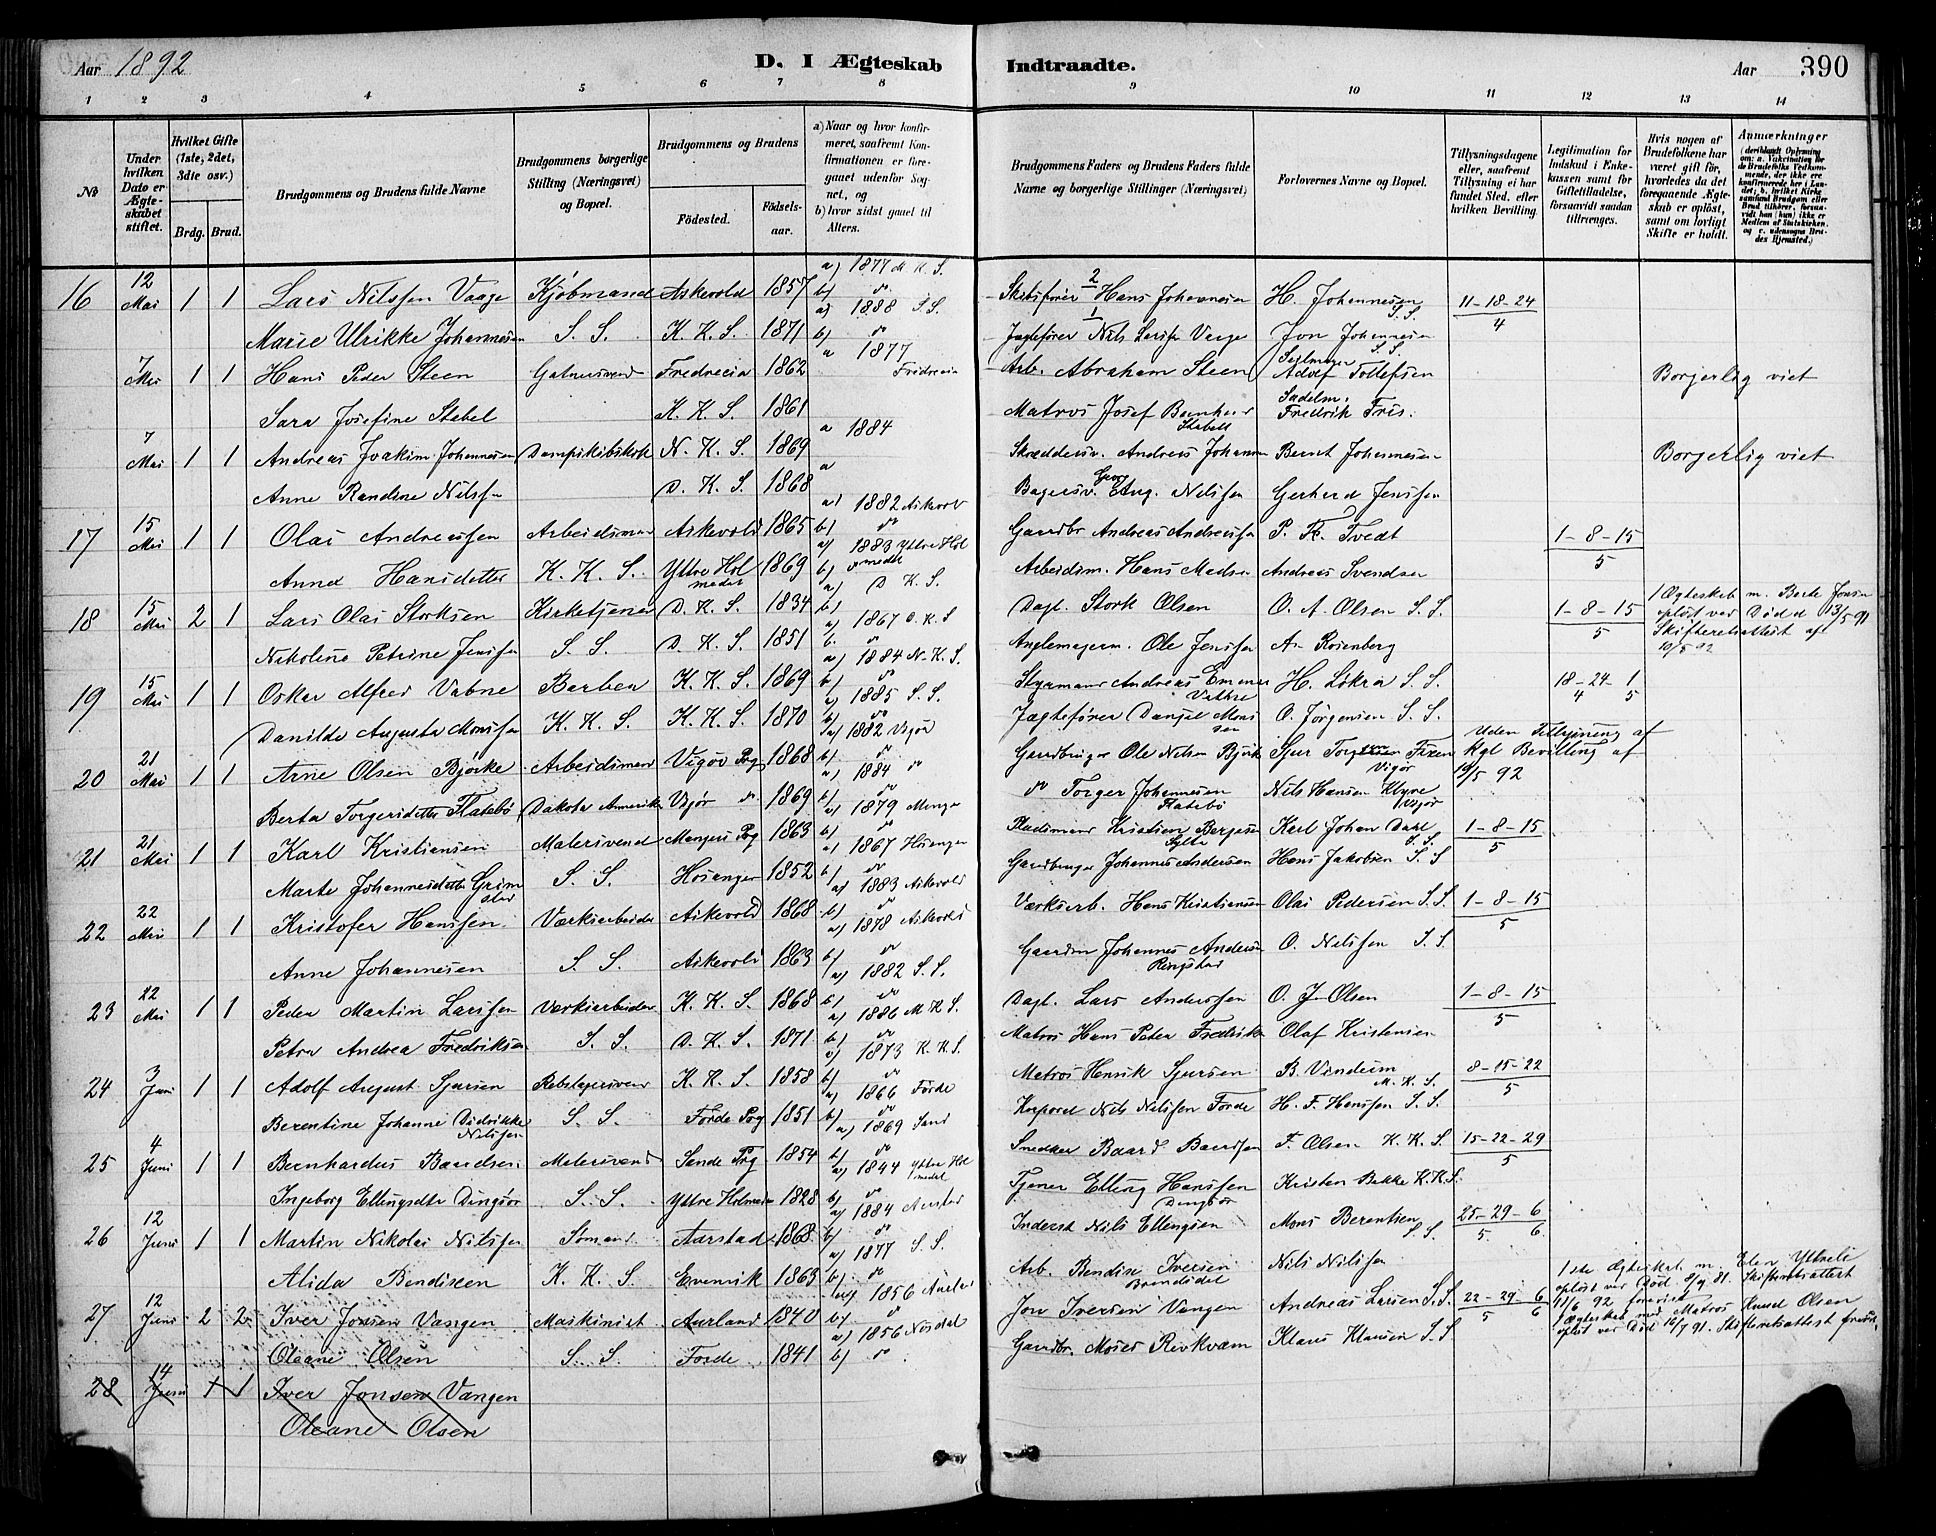 Aar 1892
D. I Ægteskab
Indtraadte.
Aar 390
1 2 3 4 5 6 7 8 9 10 11 12 13 14
No
Under hvilken Dato er Ægteskabet stiftet.
Hvilket Gifte (1ste, 2det, 3die osv.)
Brdg. Brud.
Brudgommens og Brudens fulde Navne
Brudgommens borgerlige Stilling (Næringsvei) og Bopæl.
Brudgommens og Brudens
Fødested. Fødselsaar.
a) Naar og hvor konfirmeret, saafremt Konfirmationen er foregaaet udenfor Sognet, og
b) hvor sidst gaaet til Alters.
Brudgommens Faders og Brudens Faders fulde Navne og borgerlige Stillinger (Næringsvei)
Forlovernes Navne og Bopæl.
Tillysningsdagene eller, saafremt Tillysning ei har fundet Sted, efter hvilken Bevilling.
Legitimation for Indskud i Enkekassen samt for Giftetilladelse, forsaavidt saadan tiltrænges.
Hvis nogen af Brudefolkene har været gift før, hvorledes da det foregaaende Ægteskab er opløst, samt om lovligt Skifte er holdt.
Anmærkninger
16 12 Mai 1 1 Lars Nilssen Vaage Kjøbmand Askevold 1857 a) 1877 M. K. S. b) do Skibsfører 2 Hans Johannesen H. Johannesen S. S. 11-18-24/4
Marie Ulrikke Johannesen S. S. K. K. S. 1871 a) 1888 S. S. b) do Jagtefører 1 Nils Larssen Vaage Jon Johannesen S. S.
7 Mai 1 1 Hans Peder Steen Fredrecia 1862 a 1877 Fridrecia Arb. Abraham Steen Seilmager Adolf Tollefsen Borgerlig viet
Sara Josefine Stabel K. K. S. 1861 Matros Josef Stabell Sadelm. Fredrik Friis.
7 Mai 1 1 Andreas Joakim Johannesen Dampskibskok N. K. S. 1869 a 1884 Andreas Johannes Bernt Johannesen Borgerlig viet
Anne Randine Nilssen D. K. S. 1868 a Georg Aug. Nilssen Gerhard Jenssen
17 15 Mai 1 1 Olai Andreassen Arbeidsmand Askevold 1865 a) 1882 Askevold b) do Gaardbr Andreas Andreassen P. Fr. Tvedt 1-8-15/5
Anne Hansdatter K. K. S. Yttre Holmedal 1869 a) 1883 Yttre Holmedal b) Arbeidsm. Hans Madsen Andreas Svendsen
18 15 Mai 2 1 Lars Olai Storksen Kirketjener D. K. S. 1834 a) D. K. S. b) Dagl. Stork Olsen O. A. Olsen S. S. 1-8-15/5 1 Ægteskab m. Berte Jonsen opløst ved Død d. 13/5 91 Skifteretsattest af 10/5 92
Nikoline Petrine Jenssen S. S. D. K. S. 1851 a) 1867 D. K. S b. do Anglemagerm. Ole Jenssen A. Rosenberg
19 15 Mai 1 1 Oskar Alfred Vabne Barber K. K. S. 1869 a) 1884 N. K. S. b) do Styrmand Andreas H. Løkra S. S. 18-24-1/4 5
Danilde Augusta Monssen K. K. S. K. K. S. 1870 a) 1885 S. S. b) do Jagtefører Danjel Monssen O. Jørgensen S. S.
20 21 Mai 1 1 Arne Olsen Bjørke Arbeidsmand Vigør Pg 1868 a) 1882 Vigør b) do Gaardbruger Ole Nilsen Bjørke Sjur Vigør Uden Tillysning af Kgl Bevilling af 10/5 92
Berta Torgersdatter Flatebø Dakota Amerika Vigør do 1869 a) 1884 do b) do do Torger Johannesen Flatebø Nils Hansen Klyve Vigør
21 21 Mai 1 1 Karl Kristiansen Malersvend Mangers Pg 1863 a) 1879 Manger b) do Pladsmand Kristian Bergesen Karl Johan Dahl S. S. 1-8-15/5
Marte Johannesdatter Grimstad S. S. Hosanger 1852 a) 1867 Hosanger b) do Gaardbruger Johannes Andersen Hans Jakobsen S. S
22 22 Mai 1 1 Kristofer Hanssen Værksarbeider Askevold 1868 a) 1883 Askevold b) do Værksarb. Hans Kristiansen Olai Pedersen S. S. 1-8-15/5
Anne Johannesen S. S. Askevold 1863 a) 1878 Askevold b) do Gaardm Johannes Andersen Ringstad O. Nilssen S. S.
23 22 Mai 1 1 Peder Martin Larssen Værksarbeider K. K. S. 1868 a) 1882 S. S. b) do Dagl. Lars Anderssen O. J. Olsen 1-8-15/5
Petra Andrea Fredriksen S. S. D. K. S. 1871 a) 1886 M K S. b) do Matros Hans Peter Fredriksen Olaf Kristensen
24 3 Juni 1 1 Adolf August Sjursen Rebslagersvend K. K. S. 1858 a) 1873 K. K. S. b) do Matros Henrik Sjursen B. Vindeim M. K. S. 8-15-22/5
Berentine Johanne Didrikke Nilssen S. S. Førde Pg 1851 a) 1866 Førde b) do Korporal Nils Nilssen Førde H. F. Hanssen S. S.
25 4 Juni 1 1 Bernhardus Baardsen Malersvend Sande Pg 1854 a) 1869 Sand b) do Snedker Baard Baardsen F. Olsen K. K. S 15-22-29/5
Ingeborg Ellingsdtr Dingsør S. S. Yttre Holmedal 1828 a) 1844 Yttre Holmedal b) do Tjener Elling Hanssen Dingsør Kristen Bekke K. K. S.
26 12 Juni 1 1 Martin Nikolai Nilssen Sømand Aarstad 1868 a) 1884 b) do Inderst Nils Ellingsen Mons Berentsen S. S. 25-29-6/5 6
Alida Bendixen K. K. S. Evenvik 1863 a) 1877 S. S. b) do Arb. Bendix Iversen Nils Nilssen
27 12 Juni 2 2 Iver Jonsen Vangen Maskinist Aurland 1840 a) 1856 b) do Jon Iversen Vangen Andreas Larsen S. S. 22-29-6/5 6 1ste Ægteskab m. Elen Ytreli opløst ved Død 8/9 81. Skifteretsattest 11/6 92 forevist
Oleane Olsen S. S. Førde 1841 a) 1856 b) do Gaardbr. Moses Kvikvam Klaus Klausen S. S 1 Ægteskab med Matros Knud Olsen opløst ved Død 16/7 91. Skifteretsattest forevist
28 14 Juni 1 1 Iver Jonsen Vangen
Oleane Olsen